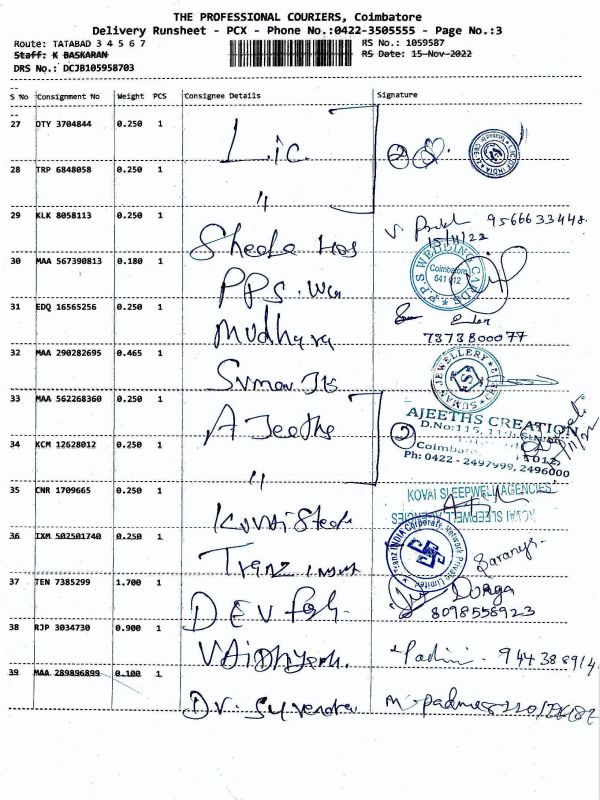 THE PROFESSIONAL COURIERS, Coimbatore
Delivery Runsheet - PCX - Phone No.:0422-3505555 - Page No.:3
Route: TATABAD 3 4 5 6 7
RS No.: 1059587
Staff: K BASKARAN
RS Date: 15-Nov-2022
DRS No.: DCJB105958703
S No Consignment No Weight PCS Consignee Details Signature
27 OTY 3704844 0.250 1 Lic.
28 TRP 6848058 0.250 1 "
29 KLK 8058113 0.250 1 9566633448
15/11/22
30 MAA 567390813 0.180 1 PPS.
P.P.S WEDDING CARDS
Coimbatore
641 012
31 EDQ 16565256 0.250 1
7373800077
32 MAA 290282695 0.465 1 Suman
SUMAN JEWELLERY
33 MAA 562268360 0.250 1 AJeeths
AJEETHS CREATION
34 KCM 12628012 0.250 1 "
Ph: 0422 - 2497999, 2496000
35 CNR 1709665 0.250 1 Kovai
KOVAI SLEEPWELL AGENCIES
36 IXM 502501740 0.250 1 Tranz
Tranz INDIA Corporate Network Private Limited
Saranya.
37 TEN 7385299 1.700 1 DEV
Durga
8098558923
38 RJP 3034730 0.900 1
39 MAA 289896899 0.100 1 Dr.